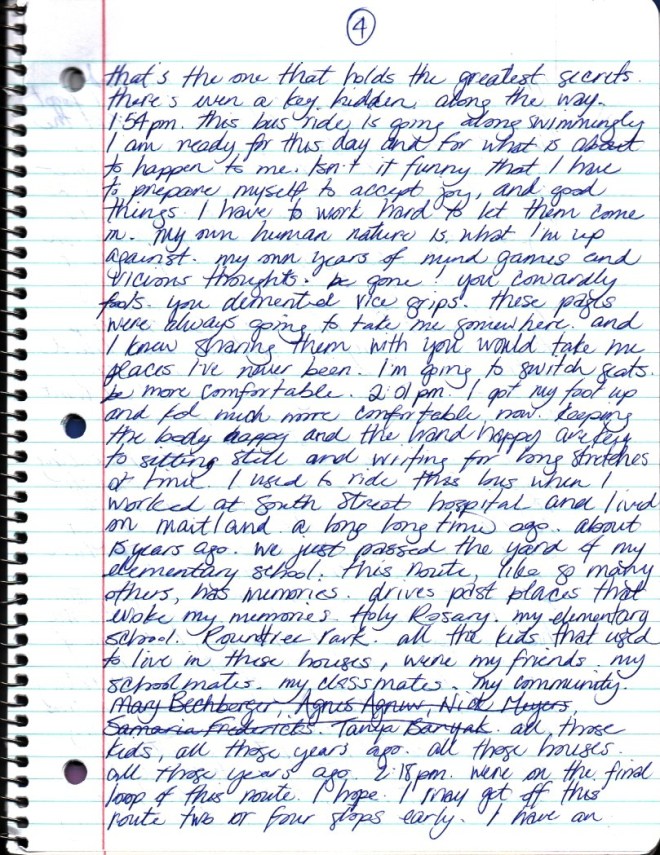 4
that's the one that holds the greatest secrets.
there's even a key, hidden, along the way.
1:54pm. this bus ride is going along swimmingly
I am ready for this day and for what is about
to happen to me. Isn't it funny that I have
to prepare myself to accept joy, and good
things. I have to work hard to let them come
in. my own human nature is what I'm up
against. my own years of mind games and
vicious thoughts. be gone! you cowardly
fools. you demented vice grips. these pages
were always going to take me somewhere. and
I knew sharing them with you would take me
places I've never been. I'm going to switch seats.
be more comfortable. 2:01pm. I got my foot up
and feel much more comfortable now. keeping
the body happy and the hand happy are key
to sitting still and writing for long stretches
of time. I used to ride this bus when I
worked at South Street hospital and lived
on maitland. a long long time ago. about
15 years ago. we just passed the yard of my
elementary school. this route, like so many
others, has memories. drives past places that
evoke my memories. Holy Rosary. my elementary
school. Rowntree Park. all the kids that used
to live in these houses, were my friends. my
schoolmates. my classmates. my community.
Mary Bechberger, Agnes Agnew, Nick Meyers,
Samaria Fredericks. Tanya Banyak. all those
kids, all those years ago. all those houses.
all those years ago. 2:18pm. were on the final
loop of this route. I hope. I may get off this
route two or four stops early. I have an